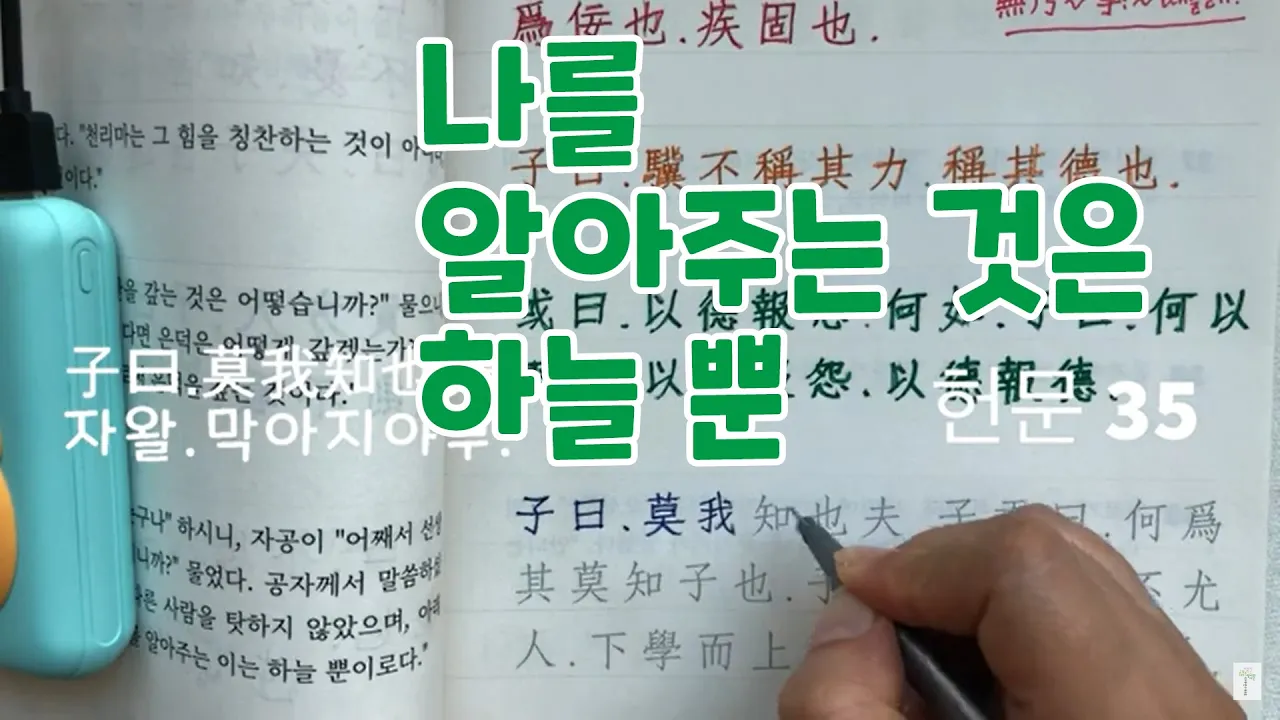 나를
알아주는 것은
하늘 뿐
子曰 莫我知也
자왈.막아지야부.
헌문 35
다. "천리마는 그 힘을 칭찬하는 것이
이다."
갚는 것은 어떻습니까?" 물으
다면 은덕은 어떻게 갚겠는가
것이다."
구나" 하시니, 자공이 "어째서 선생
니까?" 물었다. 공자께서 말씀하
사람을 탓하지 않았으며, 아래
알아주는 이는 하늘 뿐이로다."
爲佞也.疾固也.
子曰.驥不稱其力.稱其德也.
或曰.以德報怨.何如.子曰.何以
以 怨.以德報德.
子曰.莫我知也夫 子 曰.何爲
其莫知子也. 尤
人.下學而上